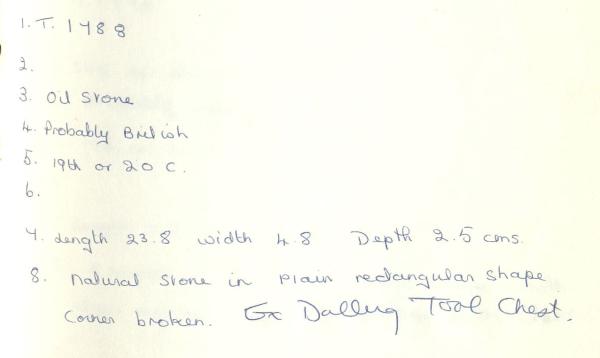 1. T. 1488
2.
3. Oil Stone
4. Probably British
5. 19th or 20 C.
6.
7. Length 23.8 width 4.8 Depth 2.5 cms.
8. Natural stone in Plain rectangular shape
Corner broken. Ex Dalling Tool Chest.